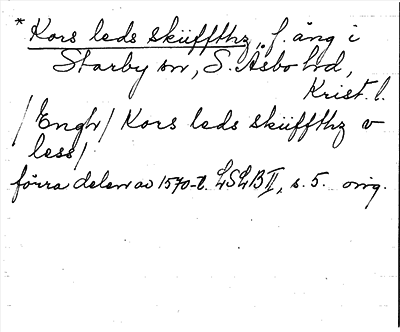 * Kors leds sküffthz, f. äng i
Starby sn, S. Åsbo hd,
Krist. l.
/Engh/ Kors leds sküffthz v
less/
förra delen av 1570-t. LSLB II, s. 5. orig.